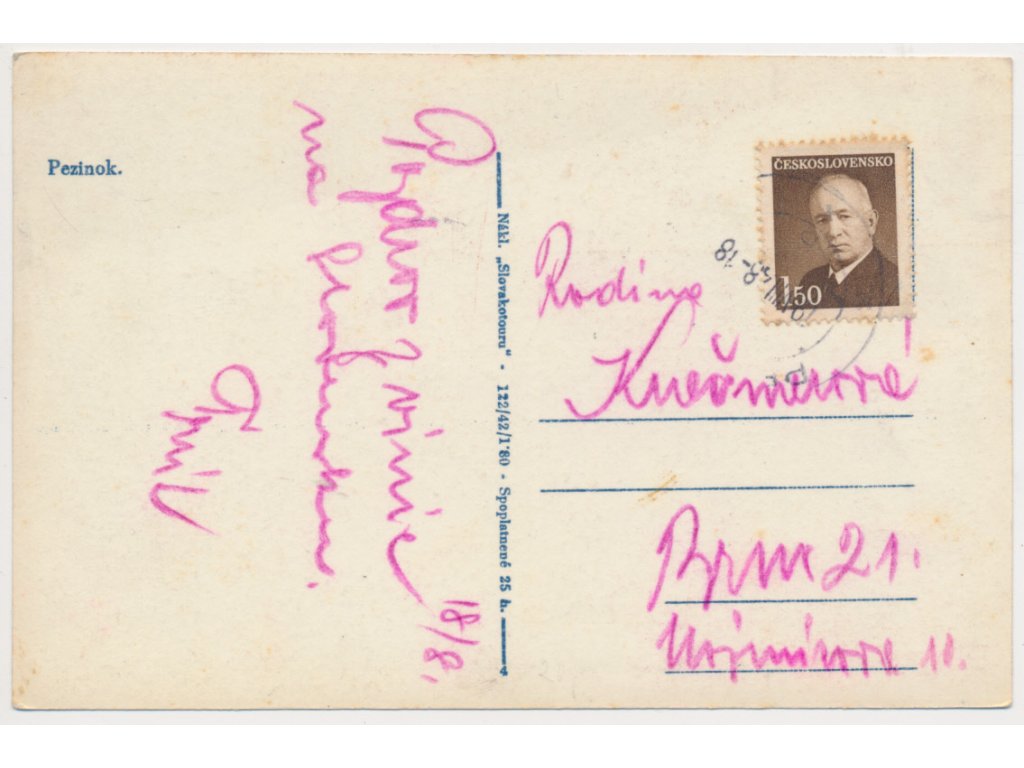 Pezinok.
Pozdrav z vinic
na Slovensku.
18/8.
Emil
Nákl. „Slovakotouru“ - 122/42/1'80 - Spoplatnené 25 h.
4
ČESKOSLOVENSKO
1.50
Rodina
Kučomerová
Brno 21.
Mojmírova 10.